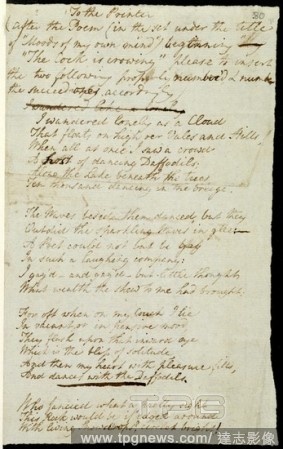 To the Printer
80
(after the Poem (in the set under the title
of "Moods of my own mind") beginning
"The Cock is crowing" please to insert
the two following properly numbered & number
the succeeding ones accordingly
I wandered like a
I wandered lonely as a Cloud
That floats on high o'er Vales and Hills
When all at once I saw a crowd
A host of dancing Daffodils;
Along the Lake, beneath the trees,
Ten thousand dancing in the breeze.
The Waves beside them danced, but they
Outdid the sparkling Waves in glee:—
A Poet could not but be gay
In such a laughing company:
I gaz'd—and gaz'd—but little thought
What wealth the shew to me had brought.
For oft when on my couch I lie
In vacant or in pensive mood,
They flash upon that inward eye
Which is the bliss of solitude,
And then my heart with pleasure fills,
And dances with the Daffodils.
Who fancied what a pretty sight
This Rock would be if edged around
With living Snowdrops? circlet bright!
TPG
www.tpgimages.com
達志影像